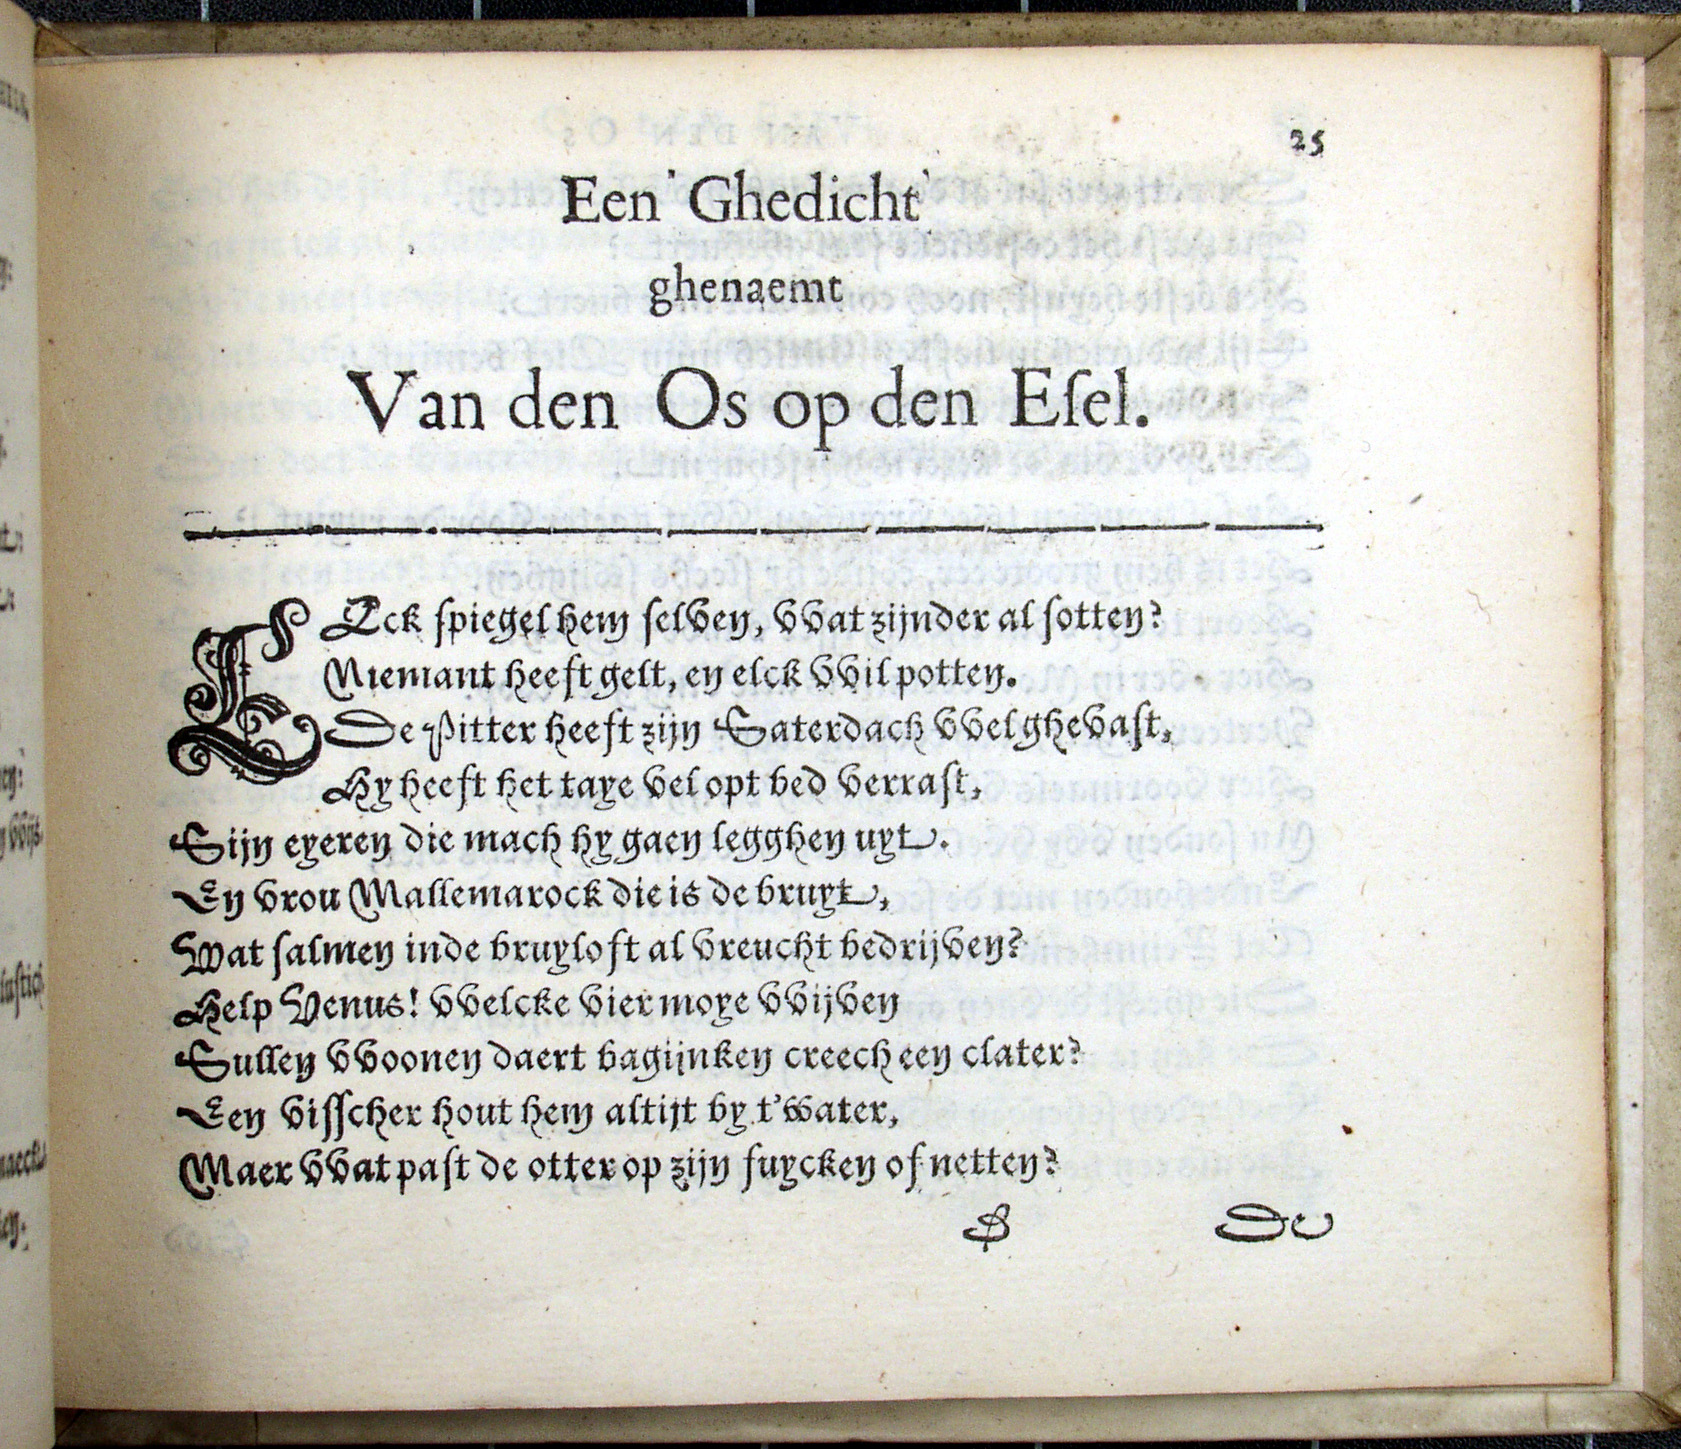 25
Een Ghedicht
ghenaemt
Van den Os op den Eſel.
ELck ſpiegel hem ſelven, vvat zijnder al ſotten?
Niemant heeft gelt, en elck vvil potten.
De Pitter heeft zijn Saterdach vvel ghevaſt,
Hy heeft het taye vel opt bed verraſt,
Sijn eyeren die mach hy gaen legghen uyt.
En vrou Mallemarock die is de bruyt,
Wat ſalmen inde bruyloft al vreucht bedrijven?
Help Venus! vvelcke vier moye vvijven
Sullen vvoonen daert bagijnken creech een clater?
Een viſſcher hout hem altijt by t'water,
Maer vvat paſt de otter op zijn fuycken of netten?
B De